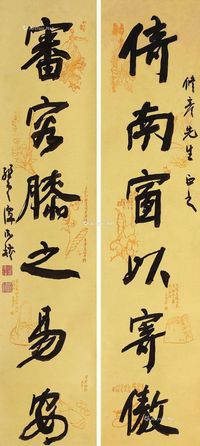 倚南窗以寄傲
審容膝之易安
先生正之